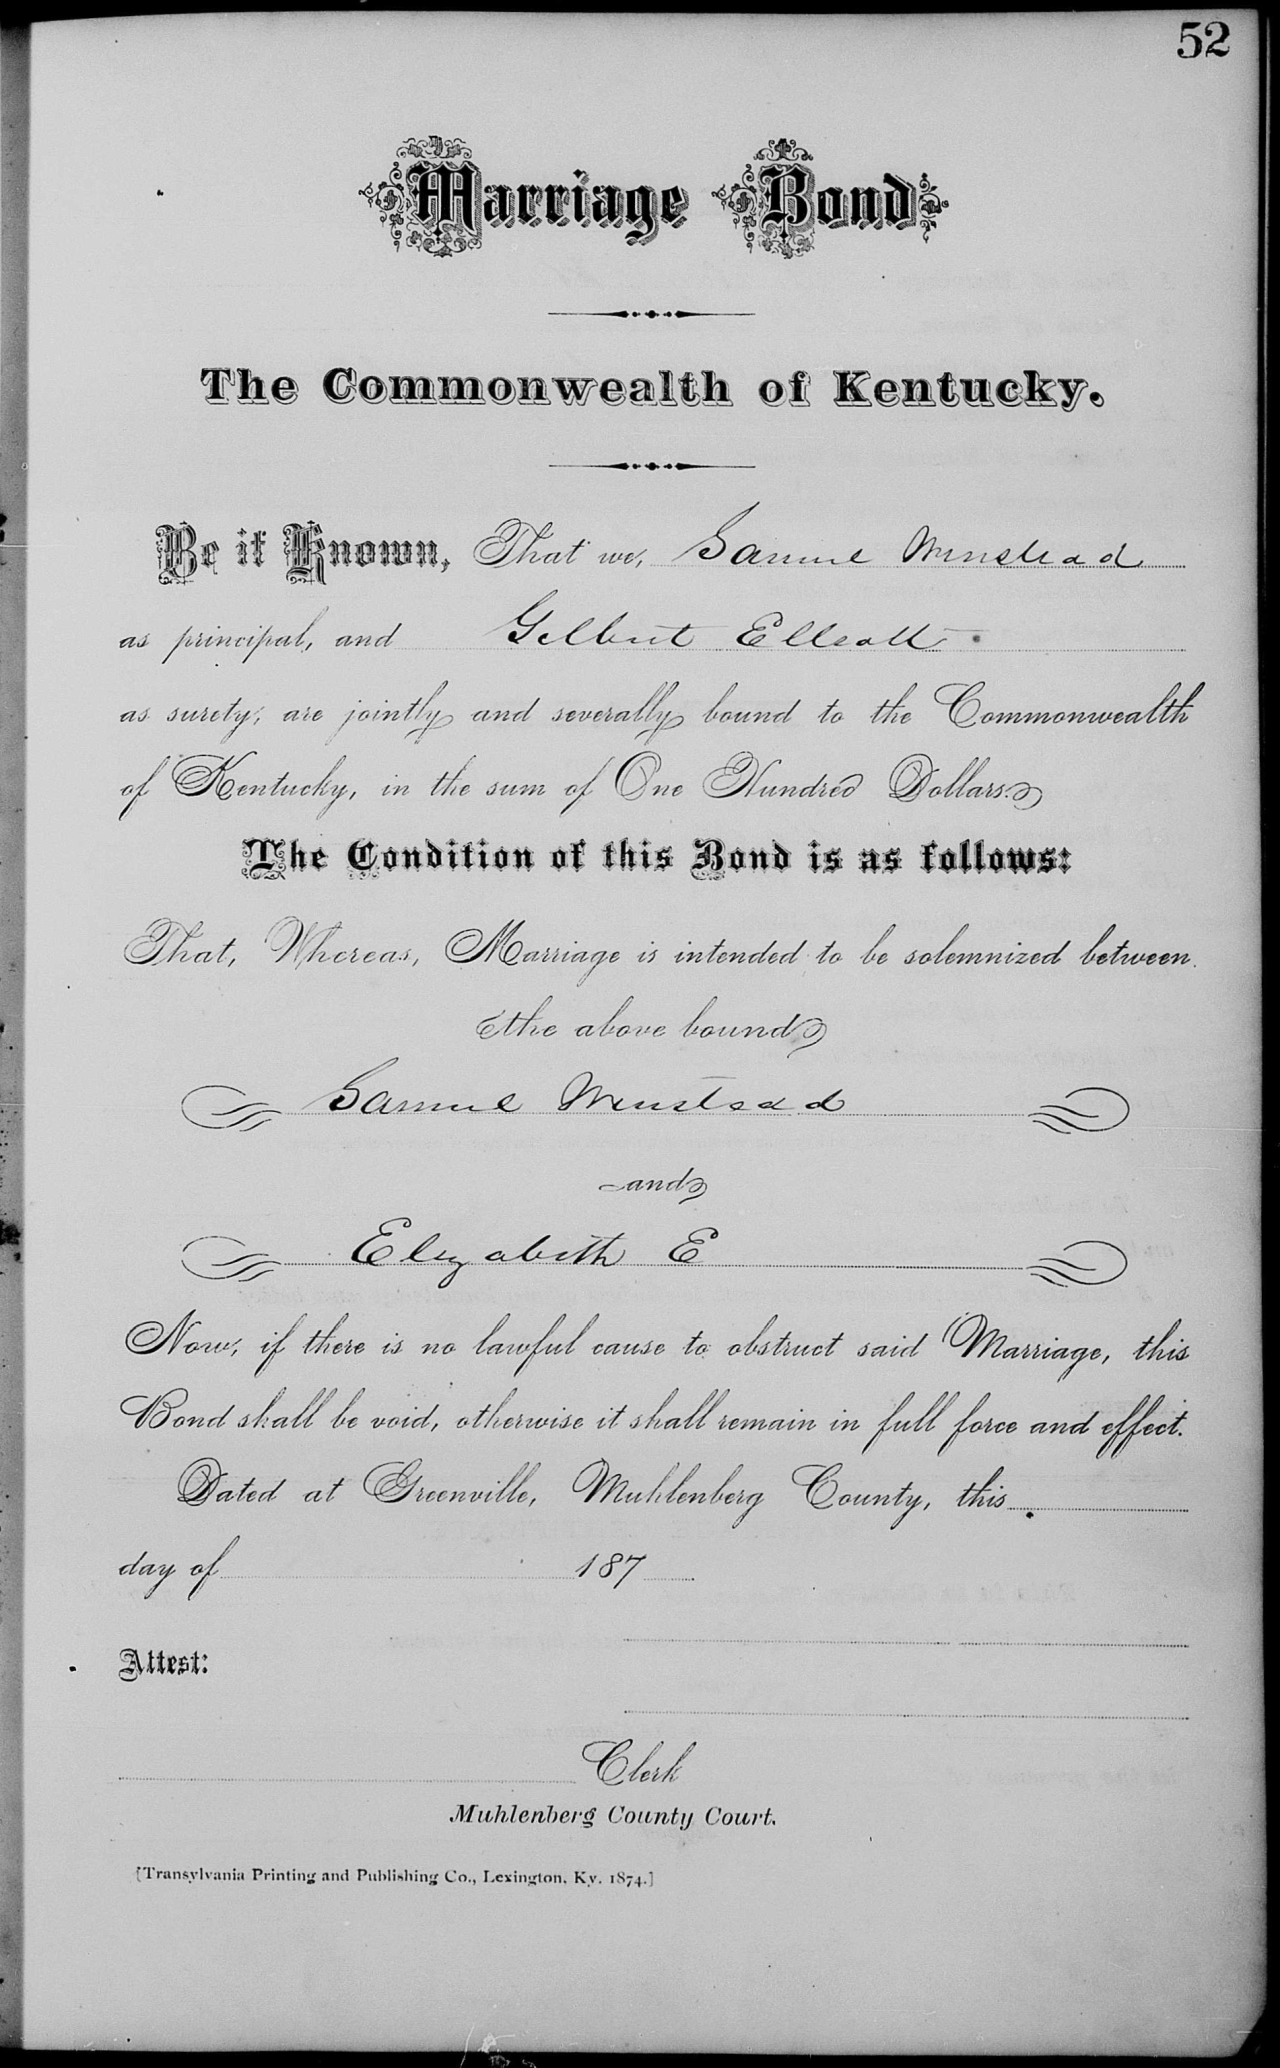 52
Marriage Bond
The Commonwealth of Kentucky.
Be it Known, That we, Samuel Winstead
as principal, and Gilbert Elleott
as surety, are jointly and severally bound to the Commonwealth
of Kentucky, in the sum of One Hundred Dollars.
The Condition of this Bond is as follows:
That, Whereas, Marriage is intended to be solemnized between
the above bound
Samuel Winstead
and
Elizabeth E
Now, if there is no lawful cause to obstruct said Marriage, this
Bond shall be void, otherwise it shall remain in full force and effect.
Dated at Greenville, Muhlenberg County, this
day of 187
Attest:
Clerk
Muhlenberg County Court.
[Transylvania Printing and Publishing Co., Lexington, Ky. 1874.]